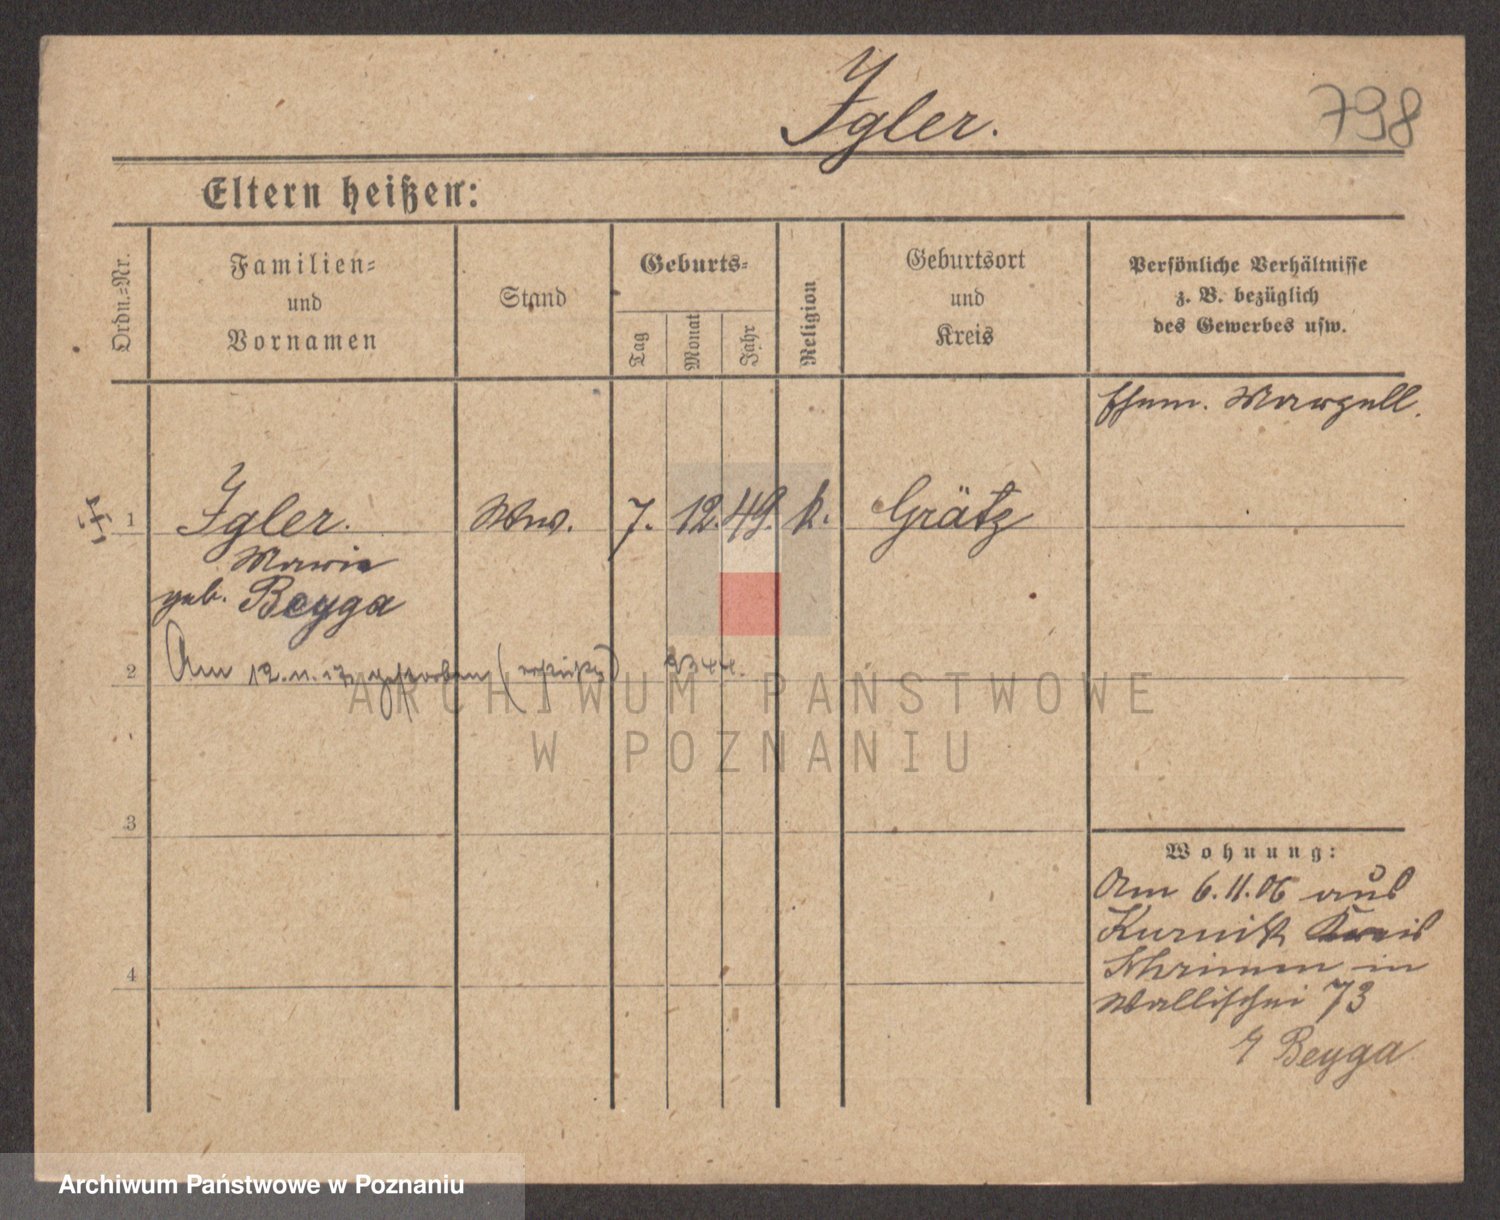 Igler.
798
Eltern heißen:
Ordn.-Nr.
Familien-
und
Vornamen
Stand
Geburts-
Tag
Monat
Jahr
Religion
Geburtsort
und
Kreis
Persönliche Verhältnisse
z. B. bezüglich
des Gewerbes usw.
Marzell.
1
Igler.
Ww.
7.
12.
49.
k.
Grätz
Marie
geb. Beyga
2
Am 12. 11. 17 gestorben
ARCHIWUM PAŃSTWOWE
W POZNANIU
3
Wohnung:
Am 6.11.06 aus
Kurnik Kreis
Schrimm in
Wallischei 73
b Beyga
4
Archiwum Państwowe w Poznaniu